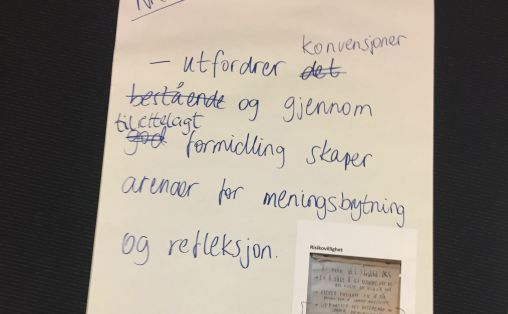 konvensjoner
– utfordrer det
bestående og gjennom
tilrettelagt
god formidling skaper
arenaer for meningsbrytning
og refleksjon.
Risikovillighet